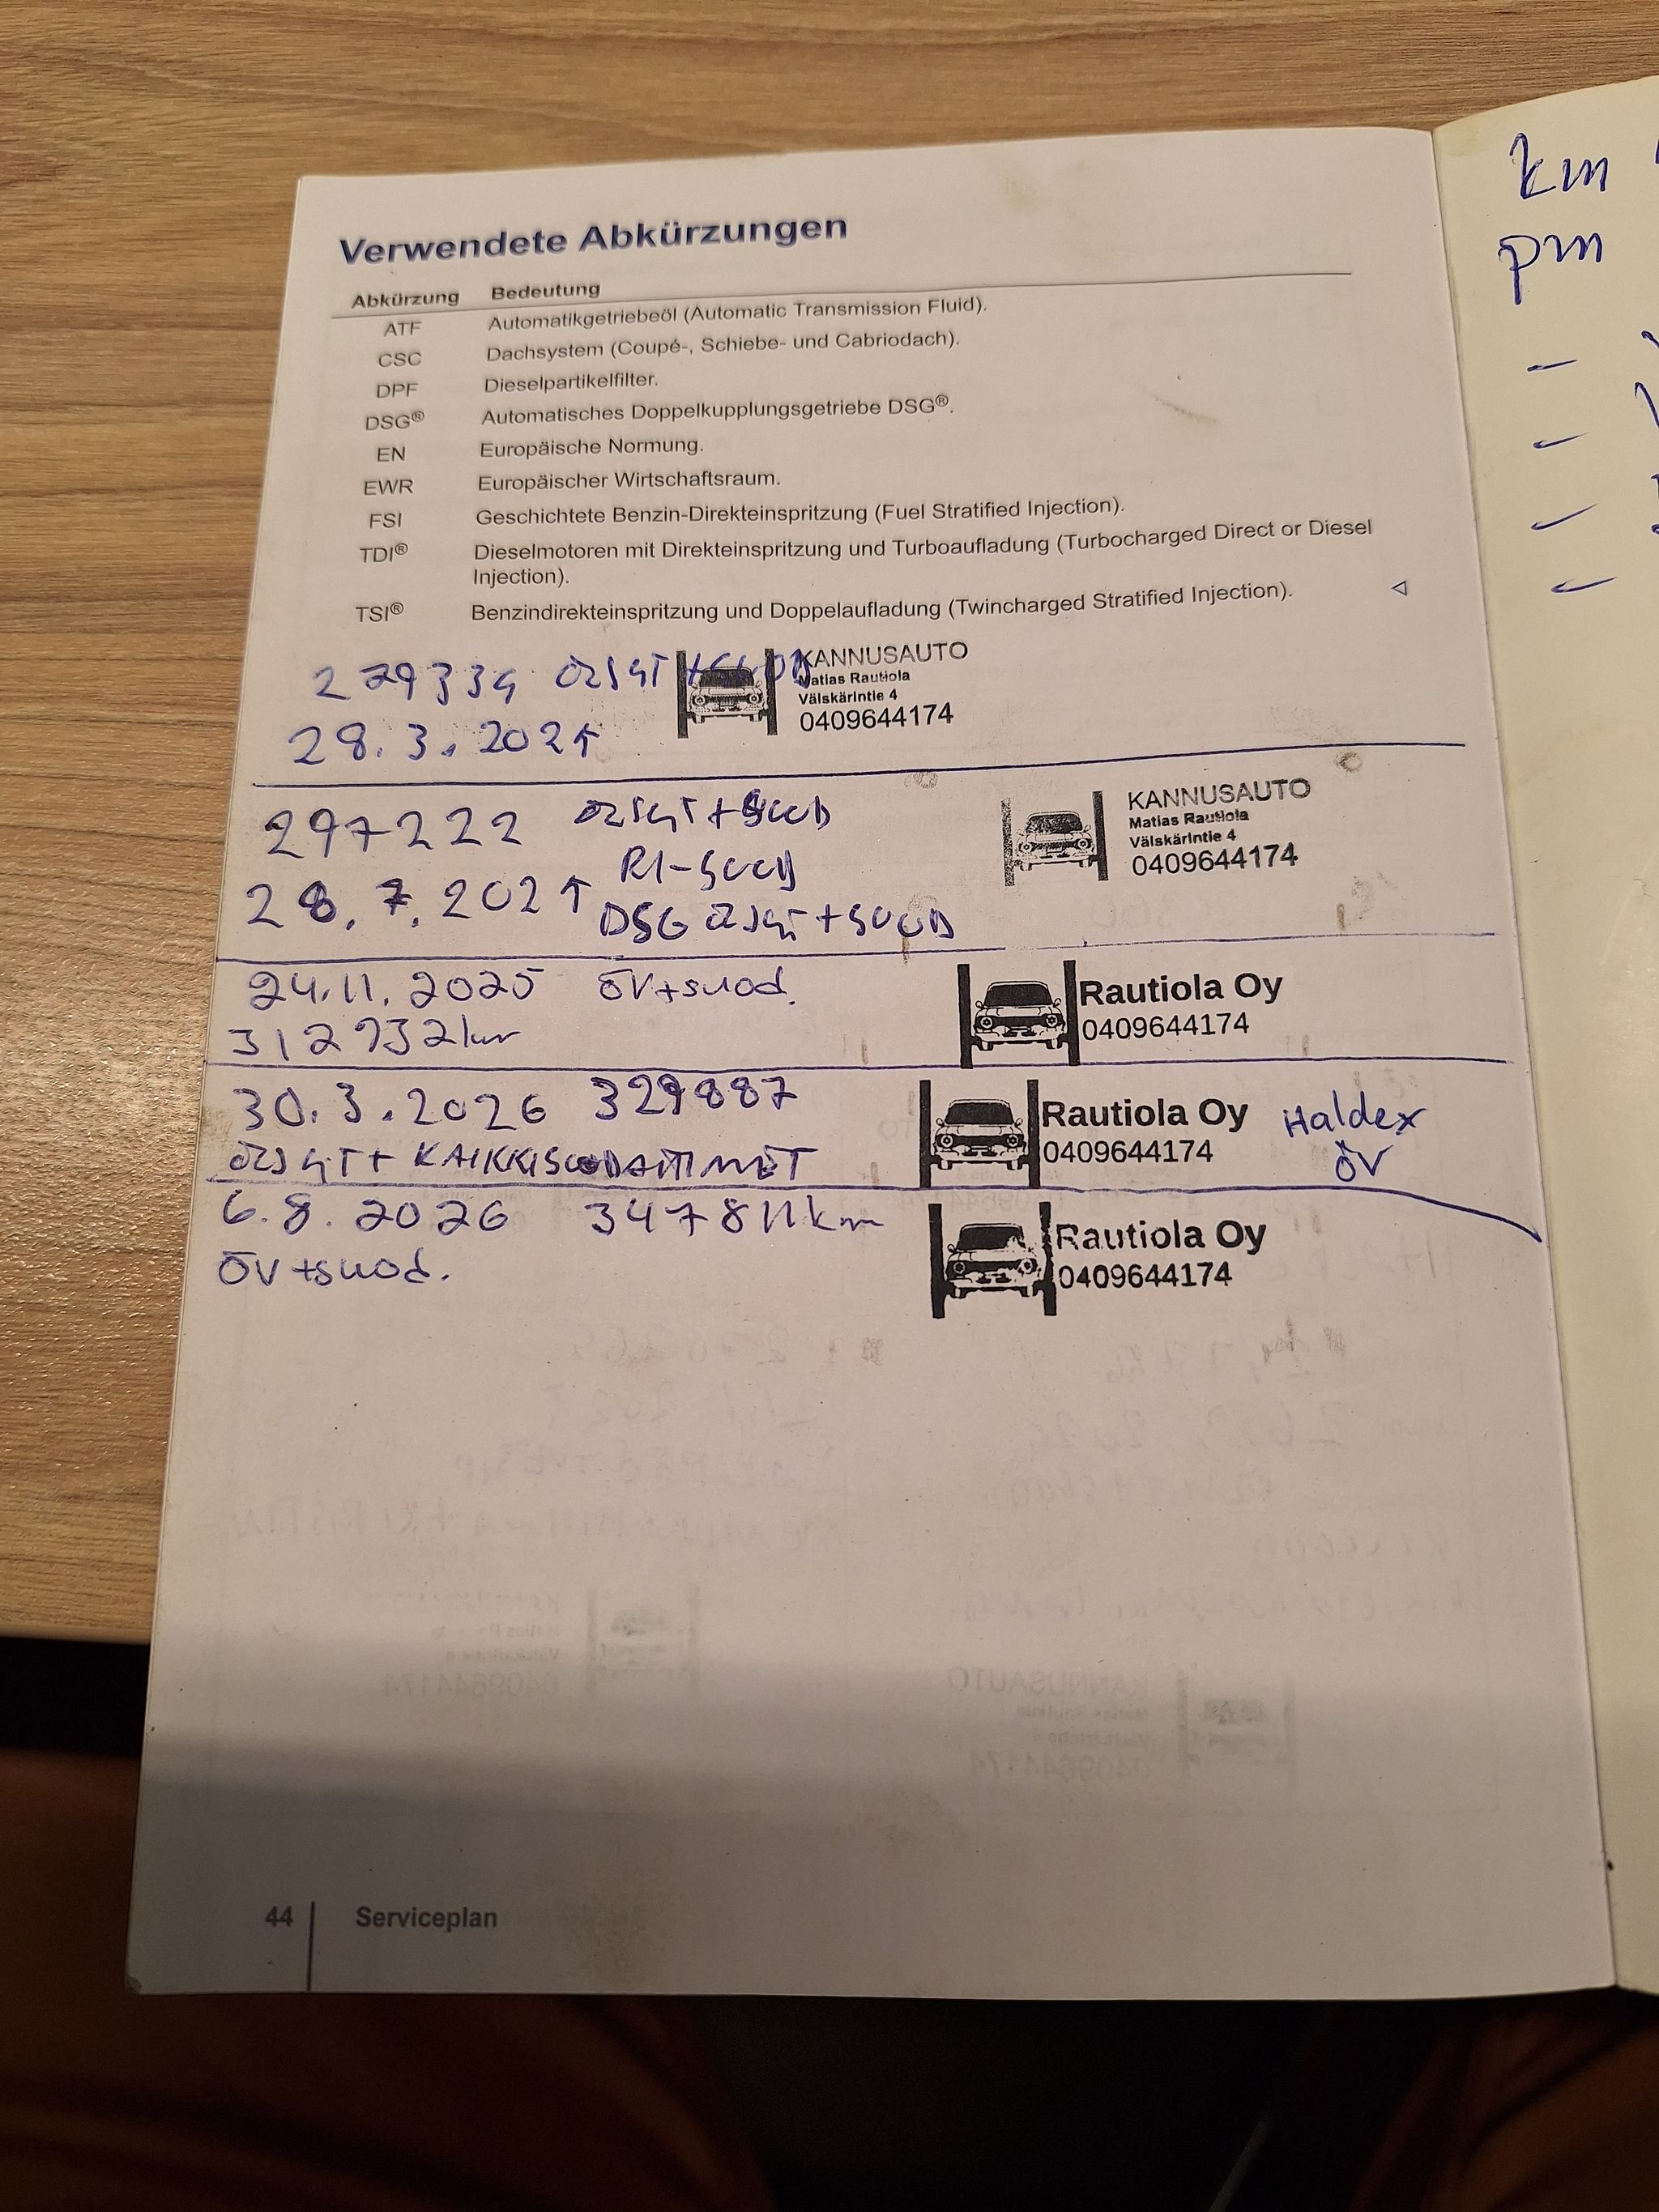 Verwendete Abkürzungen
Abkürzung Bedeutung
ATF Automatikgetriebeöl (Automatic Transmission Fluid).
CSC Dachsystem (Coupé-, Schiebe- und Cabriodach).
DPF Dieselpartikelfilter.
DSG® Automatisches Doppelkupplungsgetriebe DSG®.
EN Europäische Normung.
EWR Europäischer Wirtschaftsraum.
FSI Geschichtete Benzin-Direkteinspritzung (Fuel Stratified Injection).
TDI® Dieselmotoren mit Direkteinspritzung und Turboaufladung (Turbocharged Direct or Diesel
Injection).
TSI® Benzindirekteinspritzung und Doppelaufladung (Twincharged Stratified Injection).
KANNUSAUTO
Matias Rautiola
Välskärintie 4
0409644174
28.3.
297222
KANNUSAUTO
Matias Rautiola
Välskärintie 4
0409644174
28.7.
DSG
24.11.2025 ÖV+suod.
312932km
Rautiola Oy
0409644174
30.3.2026 329887
Rautiola Oy
0409644174
Haldex
ÖV
6.8.2026 347811km
ÖV+suod.
Rautiola Oy
0409644174
44 Serviceplan
km
pm